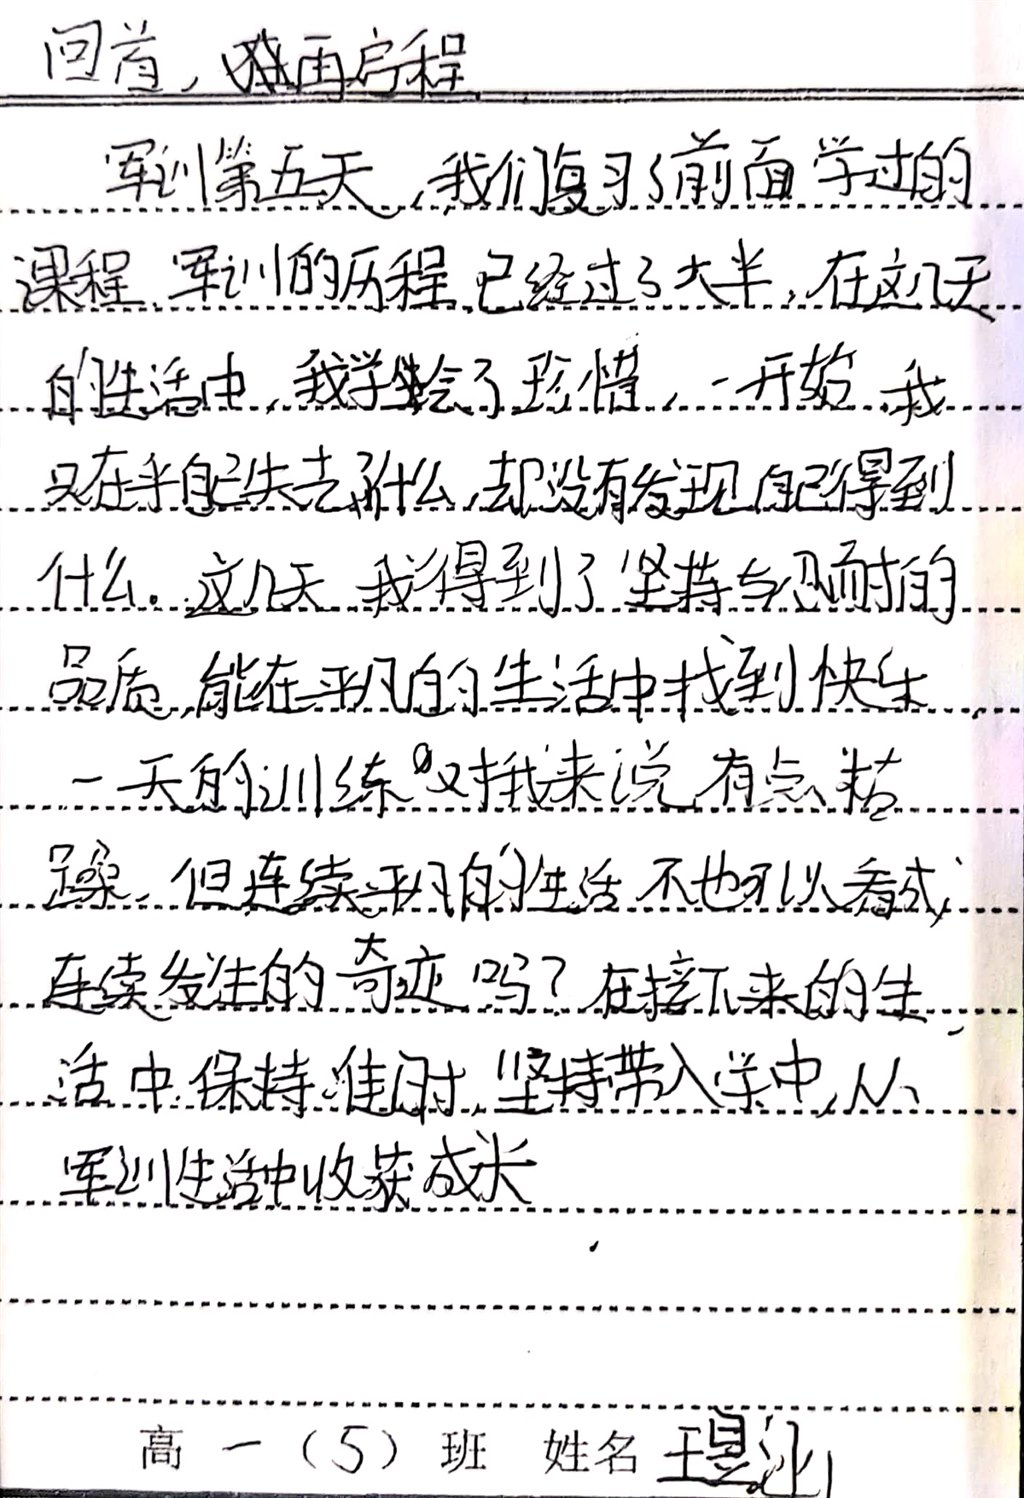 回首，再启程
军训第五天，我们复习了前面学过的
课程，军训的历程已经过了大半，在这几天
的生活中，我学会了珍惜，一开始，我
只在乎自己失去了什么，却没有发现自己得到
什么。这几天，我得到了坚持与忍耐的
品质，能在平凡的生活中找到快乐，
一天的训练对我来说，有点枯
躁，但连续平凡的生活不也可以看成，
连续发生的奇迹吗？在接下来的生
活中，保持准时，坚持带入学中，从
军训生活中收获成长
高一（5）班 姓名 王